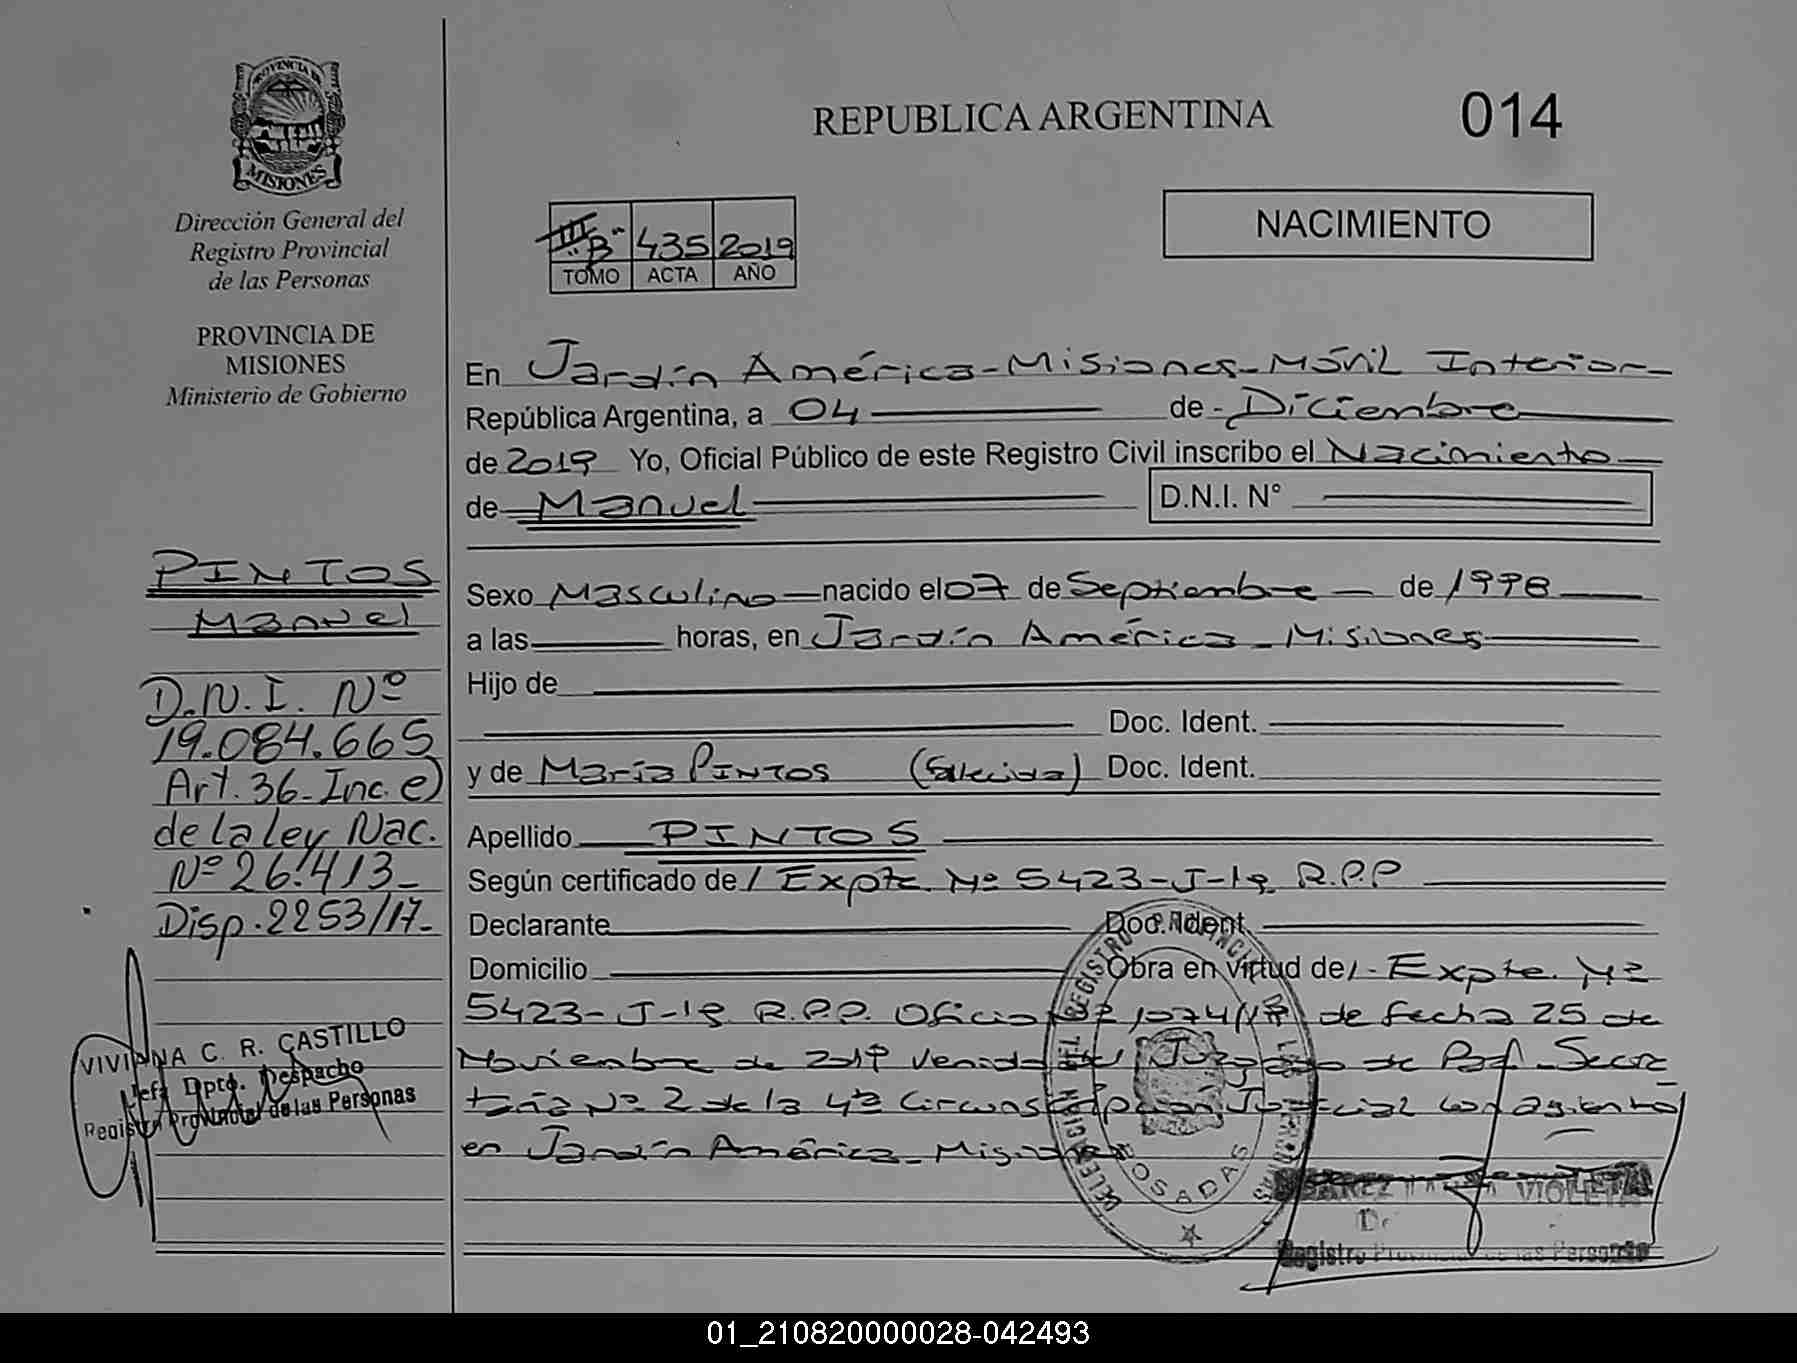 PROVINCIA DE
MISIONES
Dirección General del
Registro Provincial
de las Personas
PROVINCIA DE
MISIONES
Ministerio de Gobierno
PINTOS
Manuel
D.N.I. Nº
19.084.665
Art. 36_Inc. e)
de la ley Nac.
Nº 26.413_
Disp. 2253/17_
VIVIANA C. R. CASTILLO
Jefa Dpto. Despacho
Registro Provincial de las Personas
REPUBLICA ARGENTINA
014
III "B" 435 2019
TOMO ACTA AÑO
NACIMIENTO
En Jardín América_Misiones_Móvil Interior_
República Argentina, a 04 de - Diciembre
de 2019 Yo, Oficial Público de este Registro Civil inscribo el Nacimiento
de Manuel D.N.I. N°
Sexo Masculino nacido el 07 de Septiembre de 1998
a las horas, en Jardín América_Misiones
Hijo de
Doc. Ident.
y de María PINTOS (fallecida) Doc. Ident.
Apellido PINTOS
Según certificado de / Expte. Nº 5423-J-19 R.P.P
Declarante Doc. Ident.
Domicilio Obra en virtud de /- Expte. Nº
5423-J-19 R.P.P. Oficio Nº 1074/ de fecha 25 de
Noviembre de 2019 Venido del Juzgado de Paz_Secre_
taría Nº 2 de la 4ta Circunscripción Judicial con asiento
en Jardín América_Misiones
DELEGACION DEL REGISTRO PROVINCIAL DE LAS PERSONAS
POSADAS
VIOLETA
Registro Provincial de las Personas
01_210820000028-042493